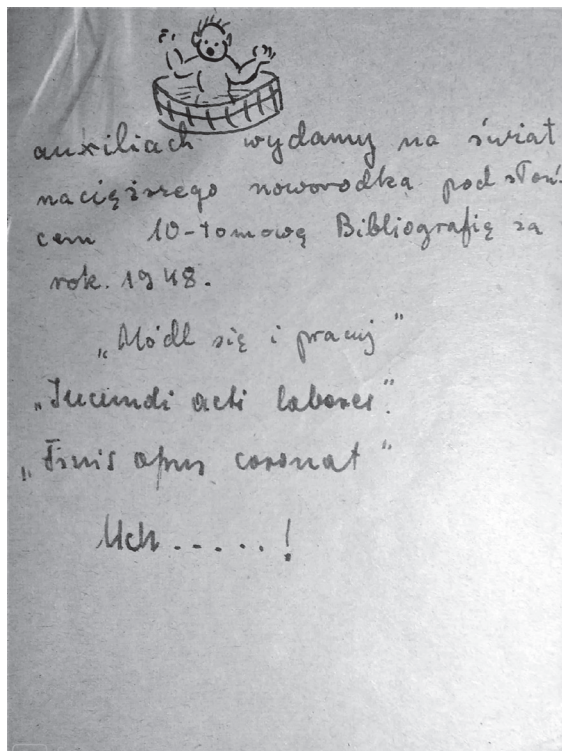 auxiliach wydamy na świat
nacięższego noworodka pod słoń-
cem 10-tomową Bibliografię za
rok. 1948.
„Módl się i pracuj”
„Iucundi acti labores”.
„Finis opus coronat”
Uch.....!